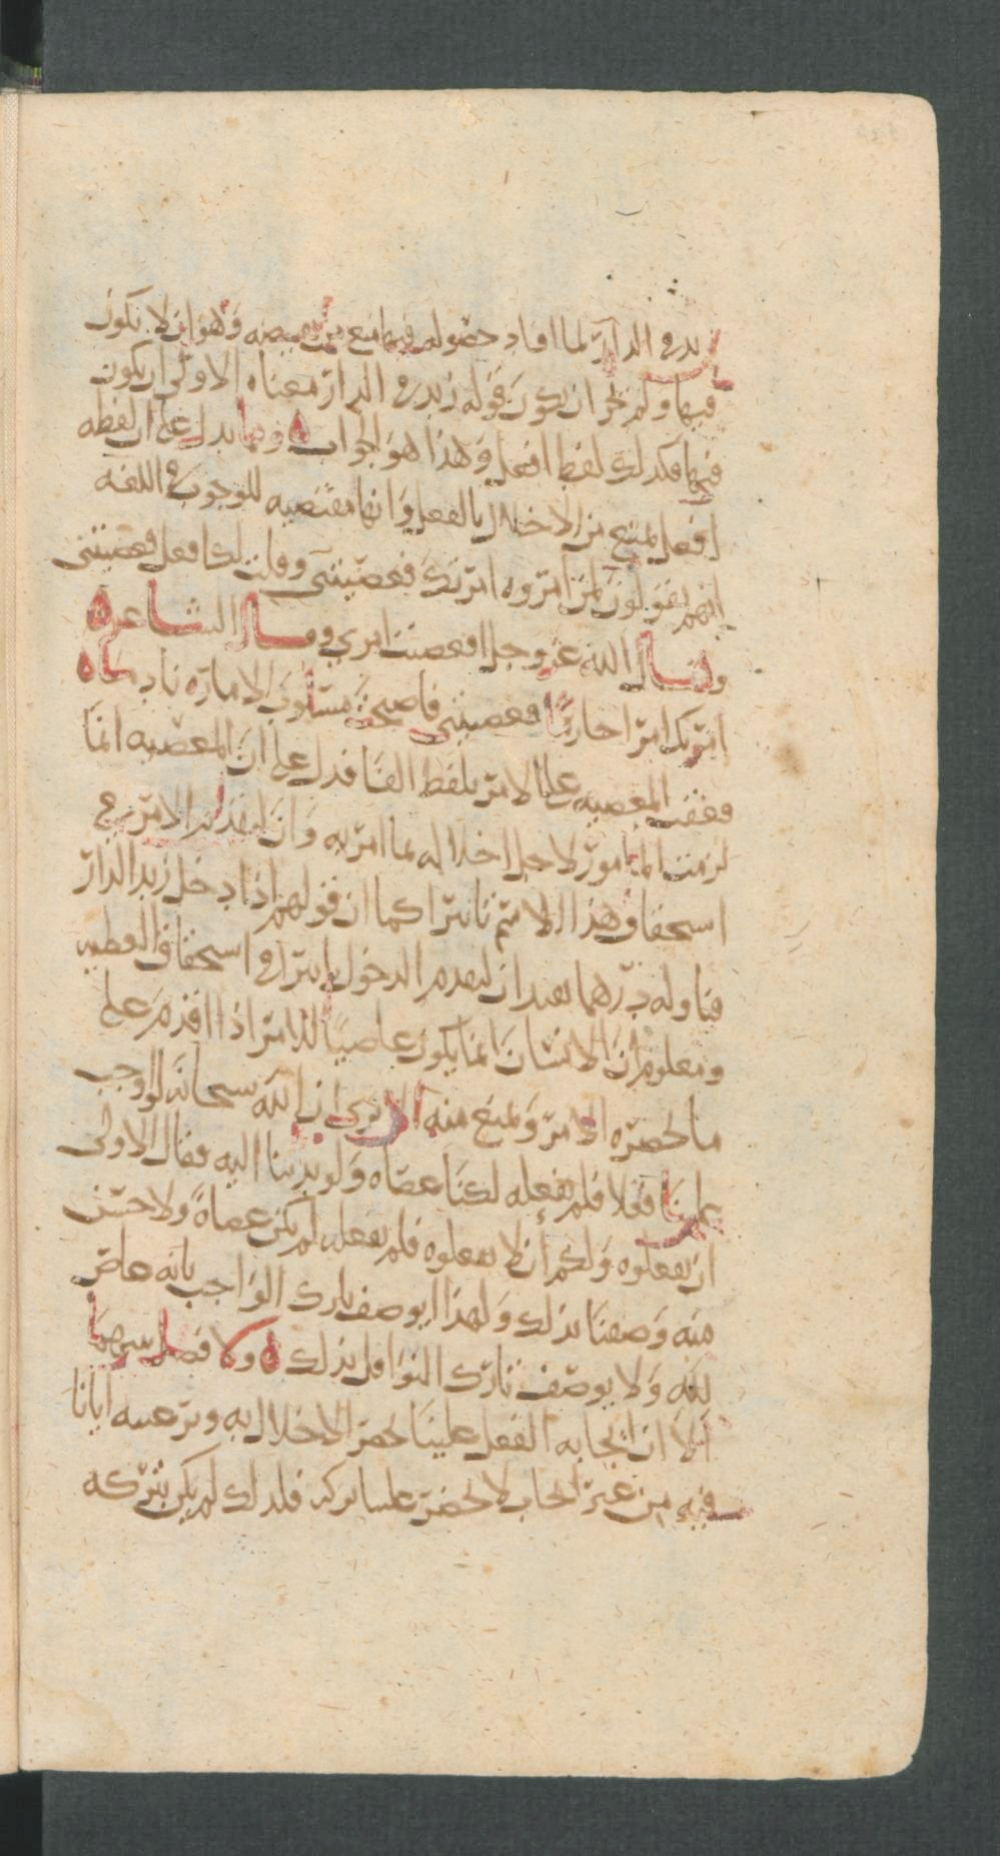 زيد في الدار لما افاد حصوله فيها منع من نقيضه وهو ان لا يكون
فيها ولم يجز ان يكون قوله زيد في الدار معناه الاولى ان يكون
فيها فكذلك لفظ افعل وهذا هو الجواب ومما يدل على ان لفظه
افعل يمنع من الاخلال بالفعل وانها مقتضيه للوجوب في اللغه
انهم يقولون لمن امروه امرتك فعصيتني وقلت لك افعل فعصيتني
وقال الله عز وجل افعصيت امري وقال الشاعر
امرتك امرا حازما فعصيتني فاصبحت مسلوب الاماره نادما
فعقب المعصيه على الامر بلفظ الفا فدل على ان المعصيه انما
لزمت المامور لاجل اخلاله بما امر به وان لتقدم الامر في
استحقاق هذا الاسم تاثيرا كما ان قولهم اذا دخل زيد الدار
فناوله درهما يفيد ان لتقدم الدخول تاثيرا في استحقاق العطيه
ومعلوم ان الانسان انما يكون عاصيا للامر اذا اقدم على
ما يحضره الامر ويمنع منه الا ترى ان الله سبحانه لو اوجب
علينا فعلا فلم نفعله لكنا عصاه ولو ندبنا اليه فقال الاولى
ان تفعلوه ولكم ان لا تفعلوه فلم نفعله لم نكن عصاة ولا حسن
منه وصفنا بذلك ولهذا يوصف تارك الواجب بانه عاص
لله ولا يوصف تارك النوافل بذلك ولا فصل بينهما
الا ان ايجابه الفعل علينا يحضر الاخلال به وترغيبه ايانا
فيه من غير ايجاب لا يحضر علينا تركه فلذلك لم يكن بتركه